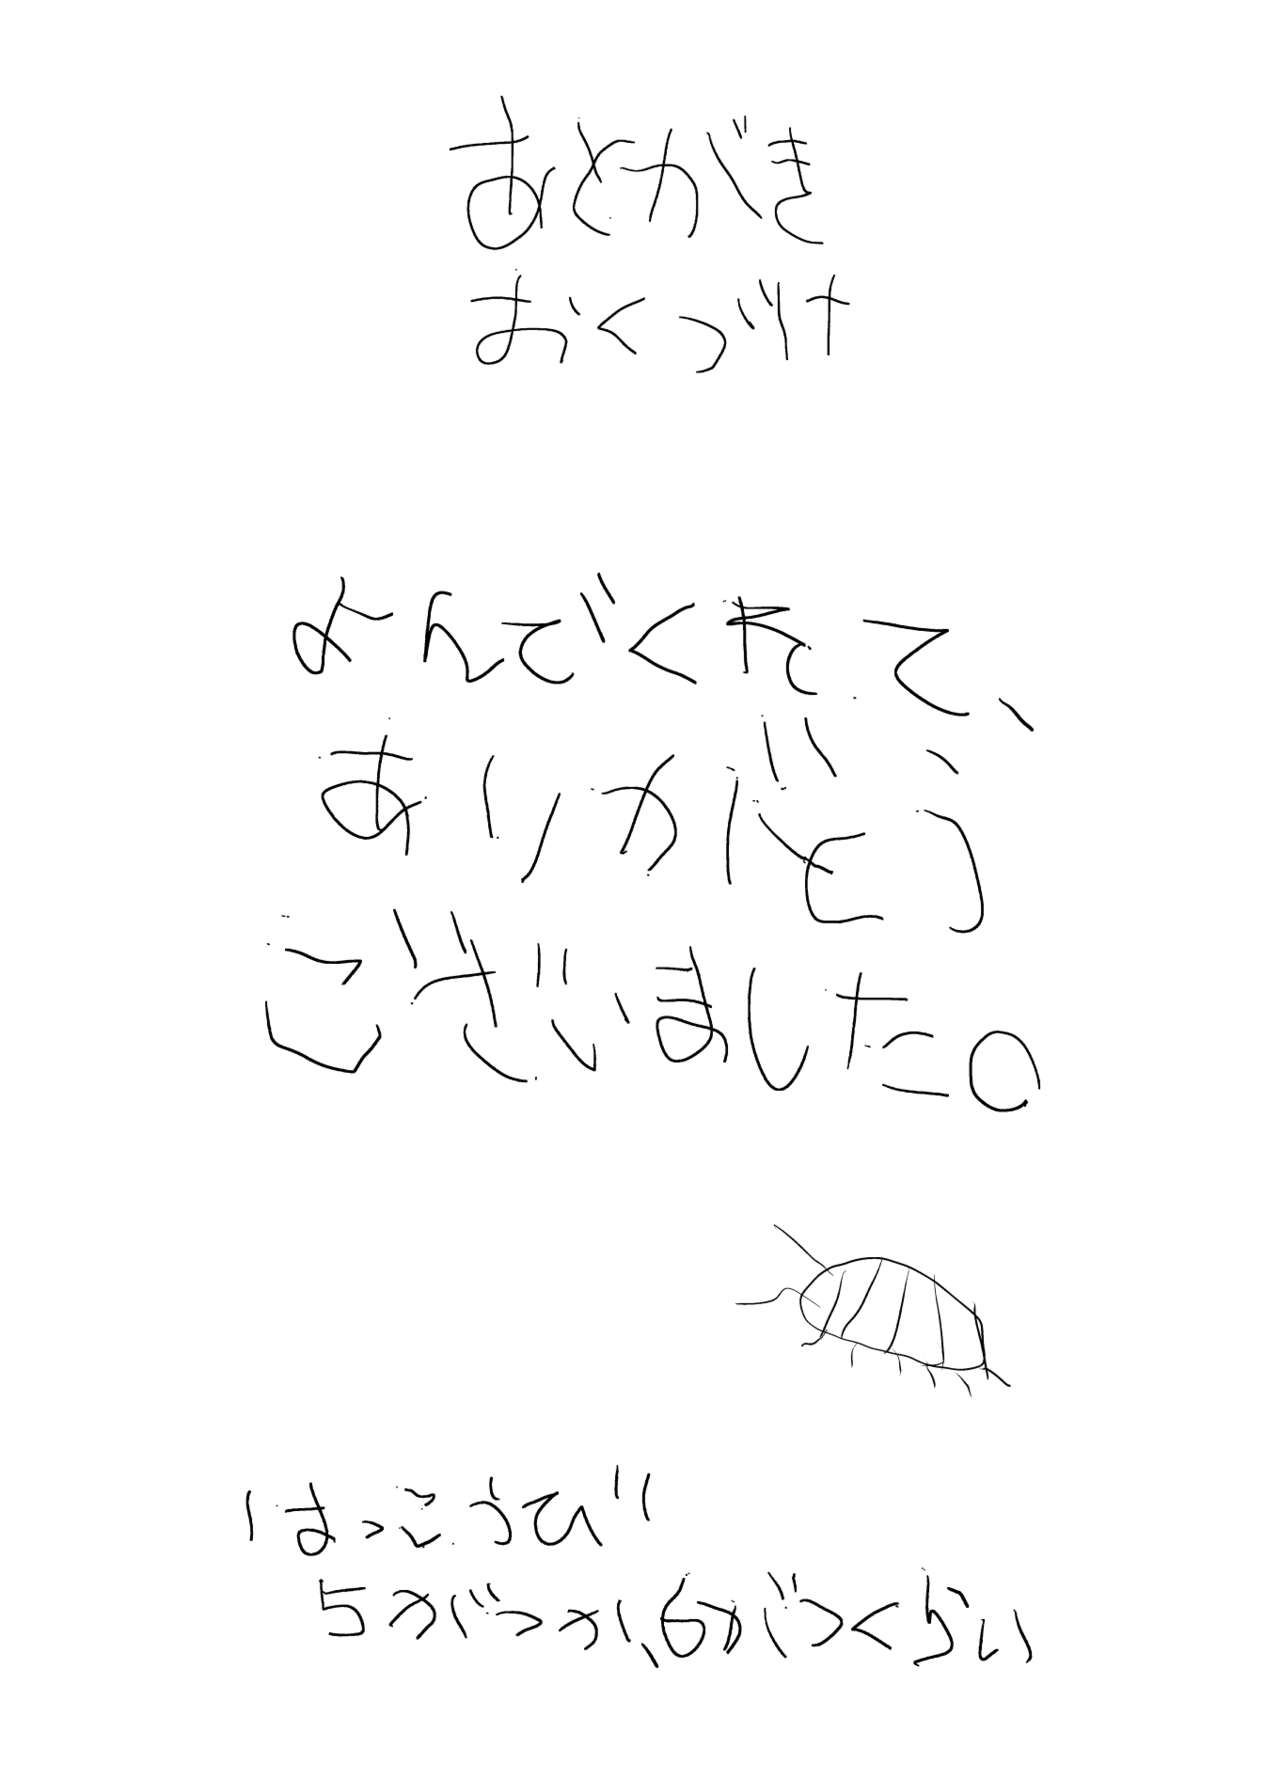 あとがき
おくづけ
よんでくれて、
ありがとう
ございました。
はっこうび
5がつか、6がつくらい